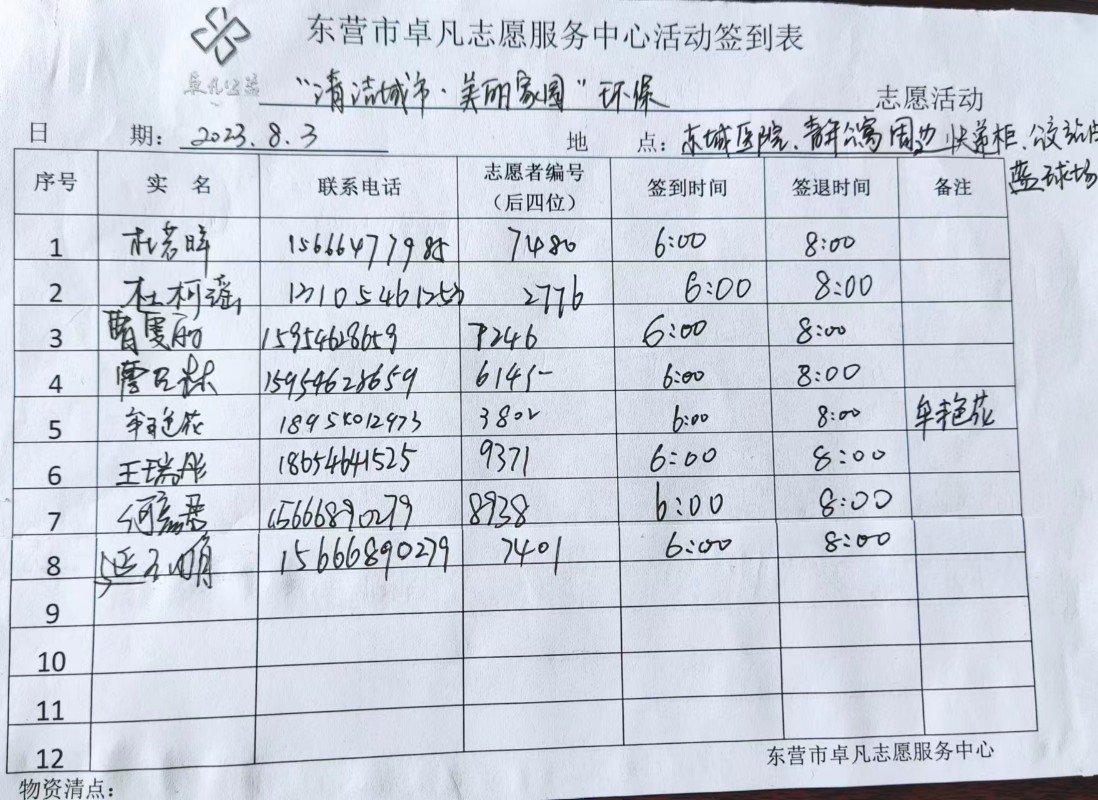 东营市卓凡志愿服务中心活动签到表
卓凡公益
"清洁城市·美丽家园"环保 志愿活动
日 期：2023.8.3 地 点：东城医院、青年公寓周边快递柜、公交站点
篮球场
序号 实 名 联系电话 志愿者编号（后四位） 签到时间 签退时间 备注
1 杜若晖 15666477985 7480 6:00 8:00
2 杜柯谣 13105461253 2776 6:00 8:00
3 15954628659 7246 6:00 8:00
4 曹 林 15954628659 6145 6:00 8:00
5 牟艳花 3802 6:00 8:00 牟艳花
6 王瑞彤 18654641525 9371 6:00 8:00
7 15666890279 8938 6:00 8:00
8 15666890279 7401 6:00 8:00
9
10
11
12
东营市卓凡志愿服务中心
物资清点：